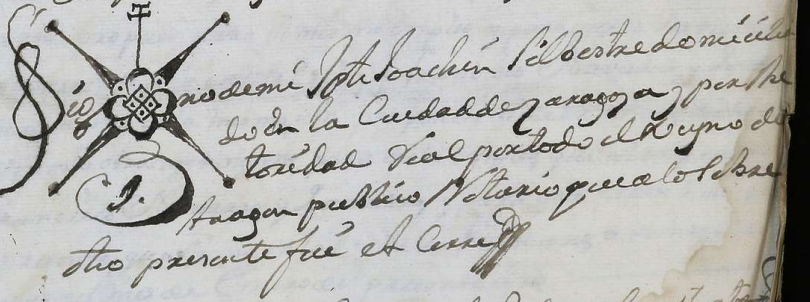 Sig no de mi Jph Joachin Silbestre domicilia
do en la Ciudad de Zaragoza y por the
toridad Real por todo el Reyno de
Aragon publico Notario que a lo sobre
dho presente fué et Cerre